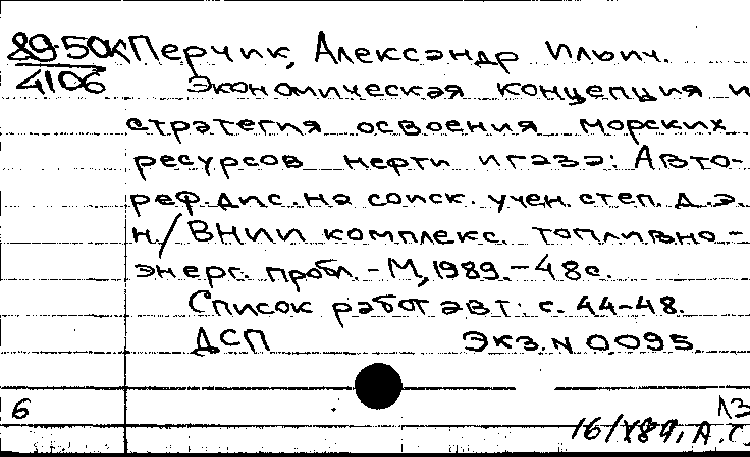 89-50К Перчик, Александр Ильич.
4106 Экономическая концепция и
стратегия освоения морских
ресурсов нефти и газа: Авто-
реф. дис. на соиск. учен. степ. д. э.
н./ ВНИИ комплекс. топливно-
энерг. пробл. - М., 1989. - 48 с.
Список работ авт.: с. 44-48.
ДСП Экз. N 0095.
6 ЛЗ
16/X89, А.С.